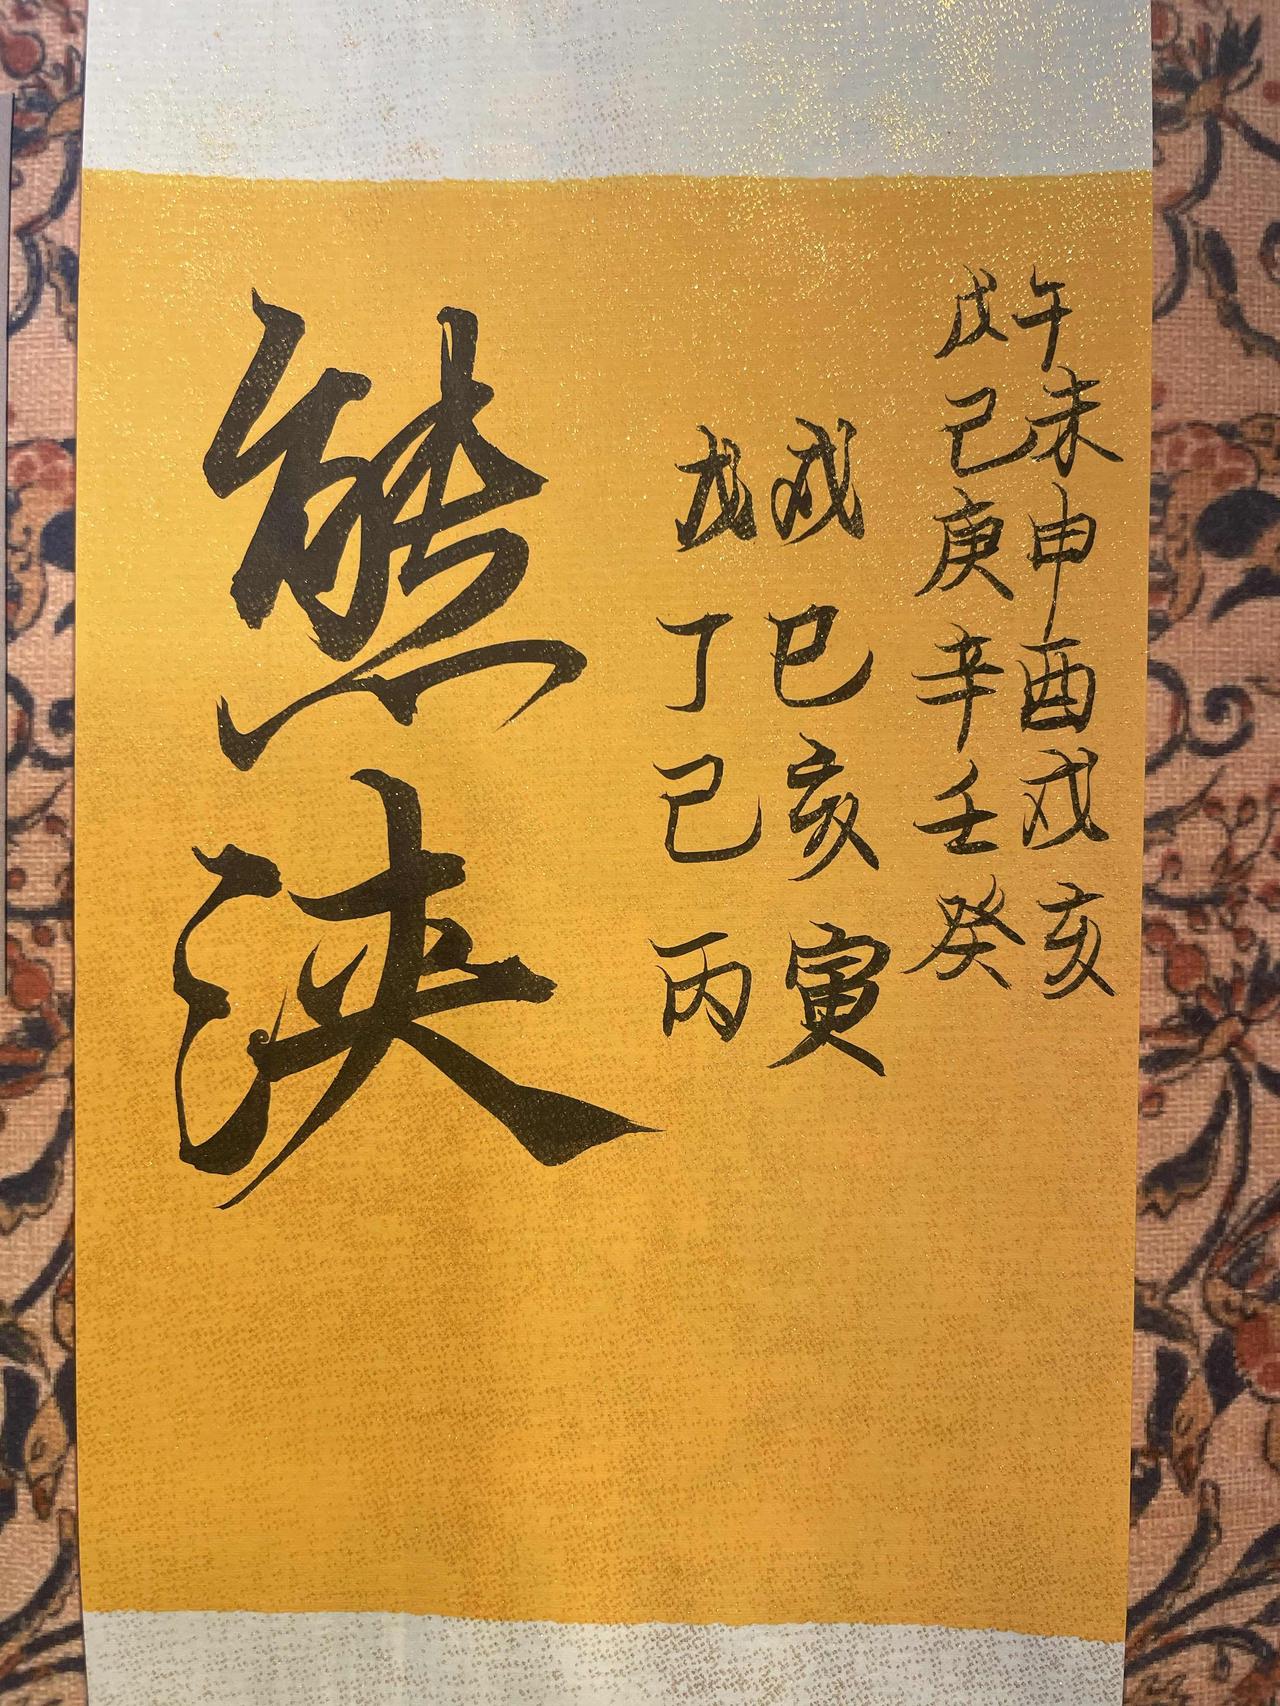 午未申酉戌亥
戊己庚辛壬癸
戌巳亥寅
戊丁己丙
熊浃